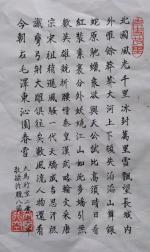 北國風光千里冰封萬里雪飄望長城內
外惟餘莽莽大河上下頓失滔滔山舞銀
蛇原馳蠟象欲與天公試比高須晴日看
紅裝素裹分外妖嬈江山如此多嬌引無
數英雄競折腰惜秦皇漢武略輸文采唐
宗宋祖稍遜風騷一代天驕成吉思汗只
識彎弓射大雕俱往矣數風流人物還看
今朝右毛澤東沁園春雪